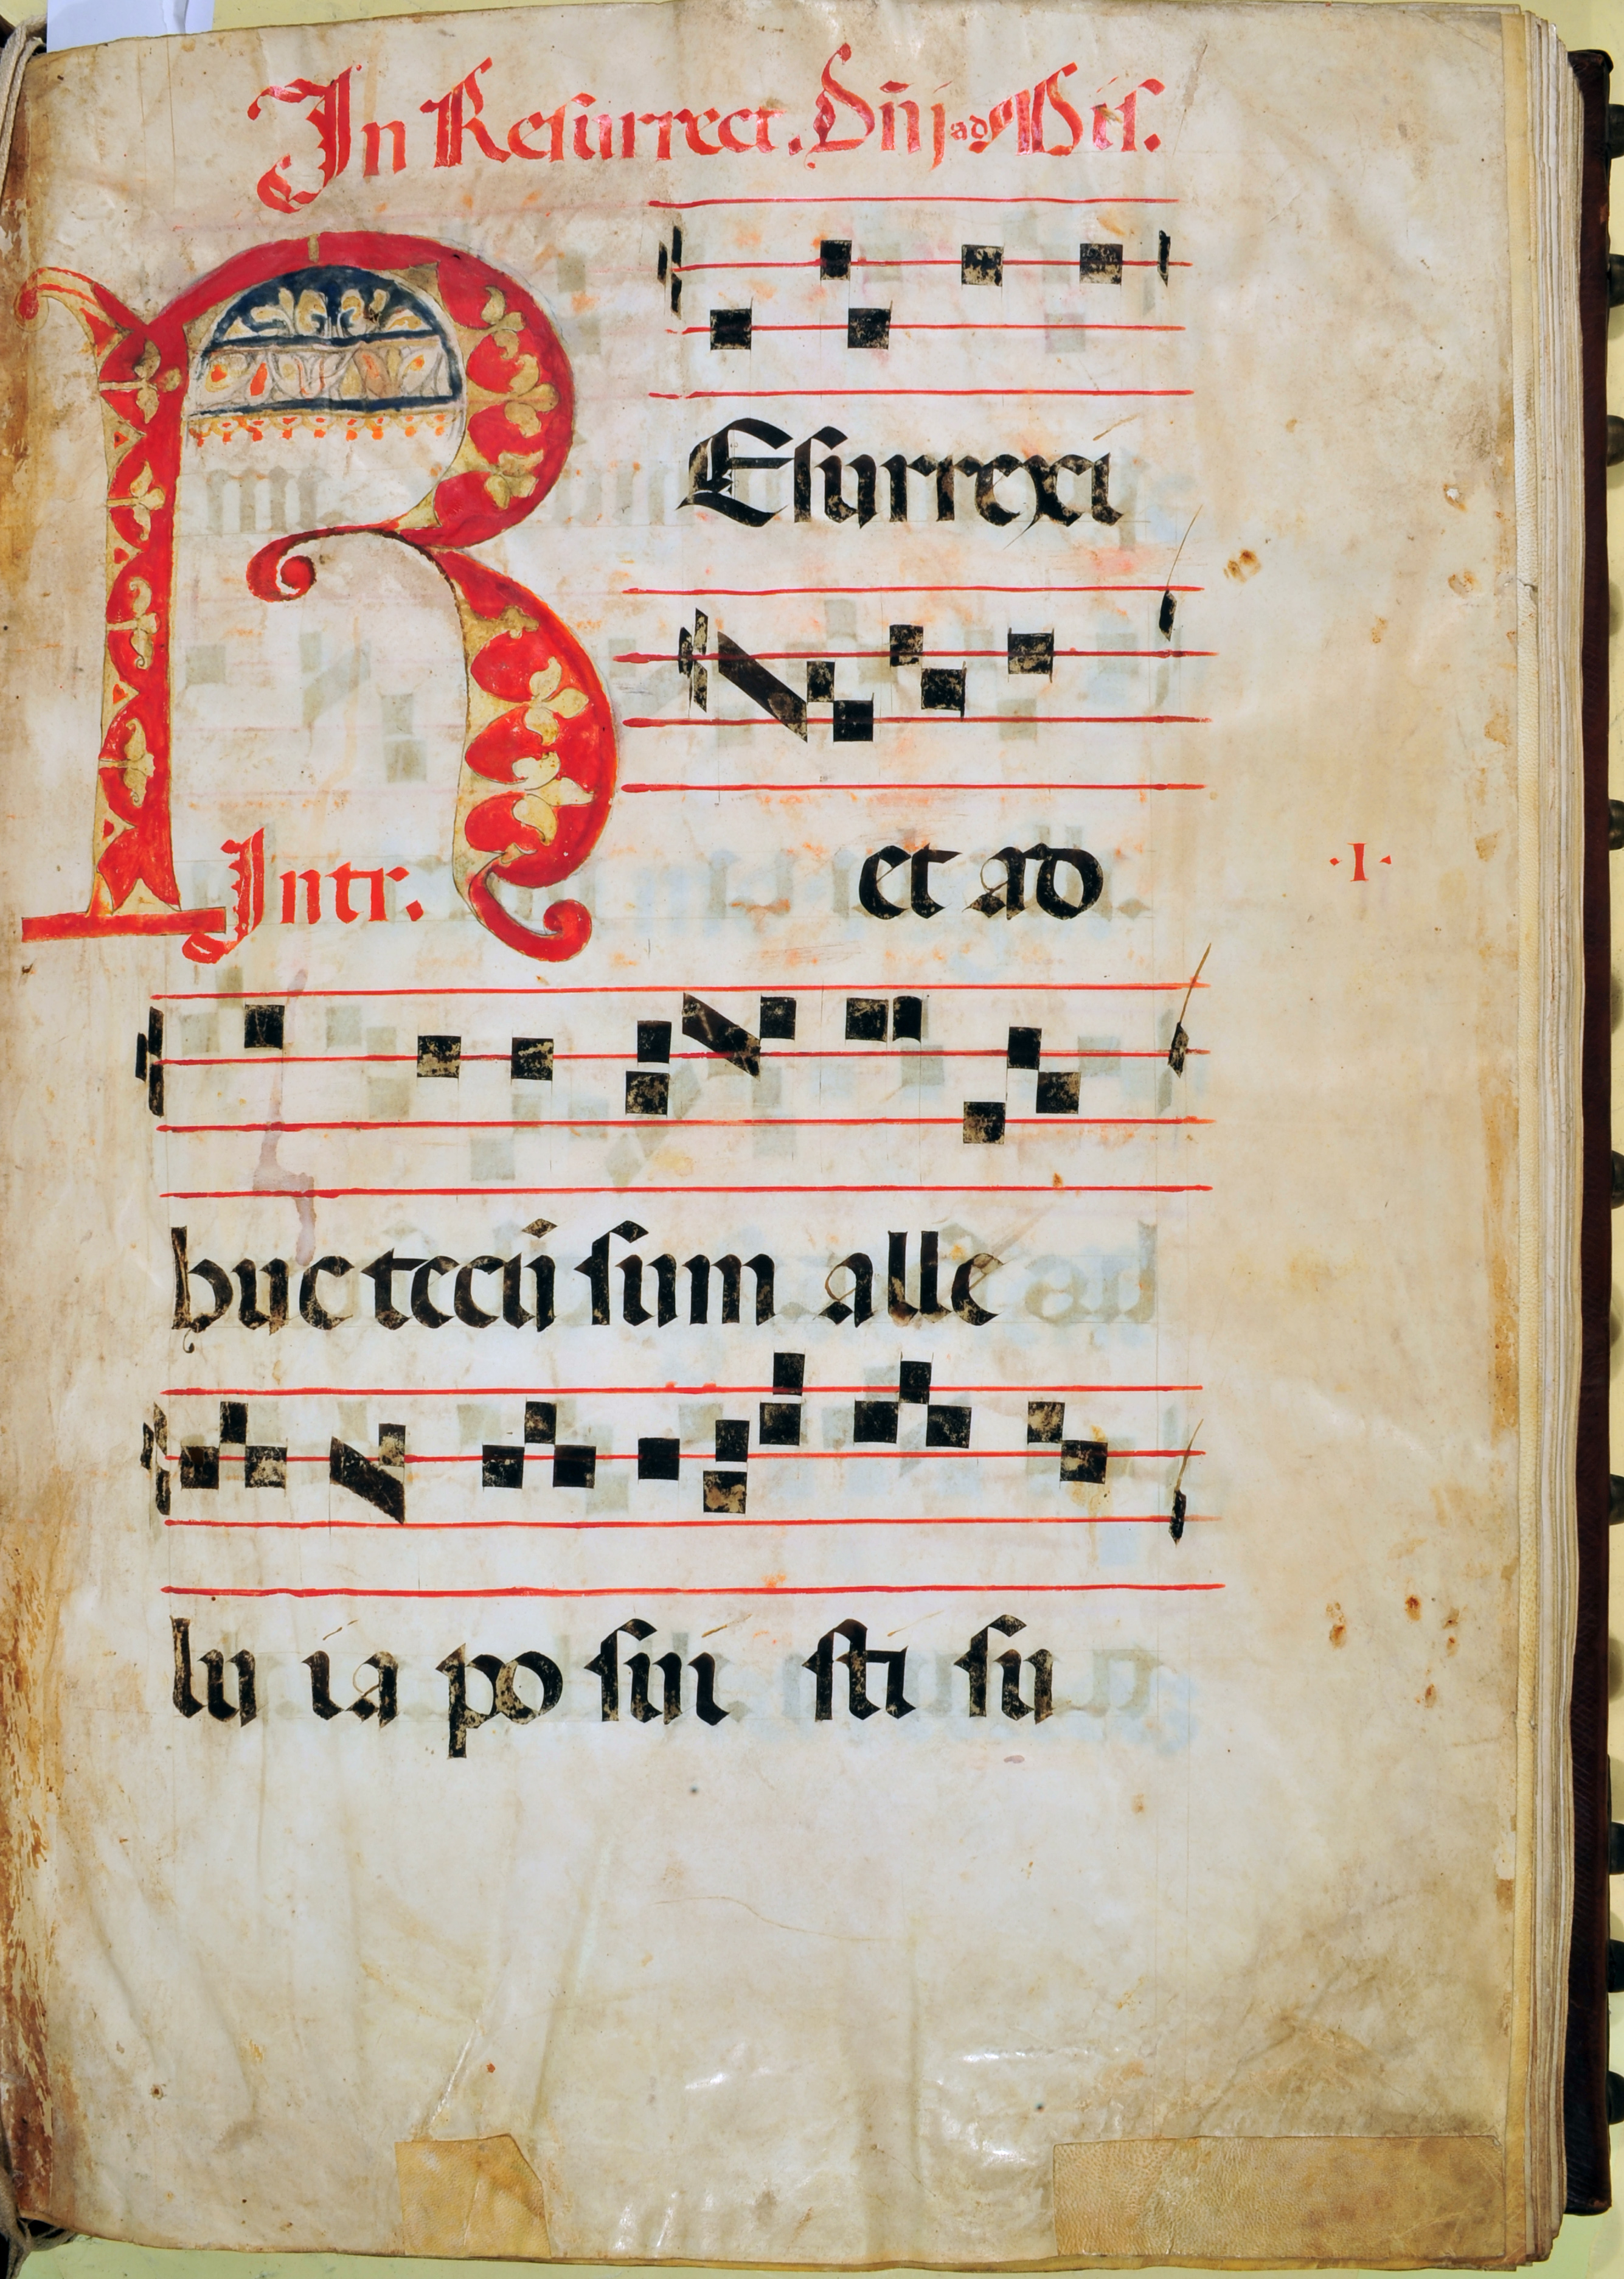 In Resurrect. Dñj ad Mis.
REsurrexi
Intr. et ad
·I·
huc tecū sum alle
lu ia po sui sti su